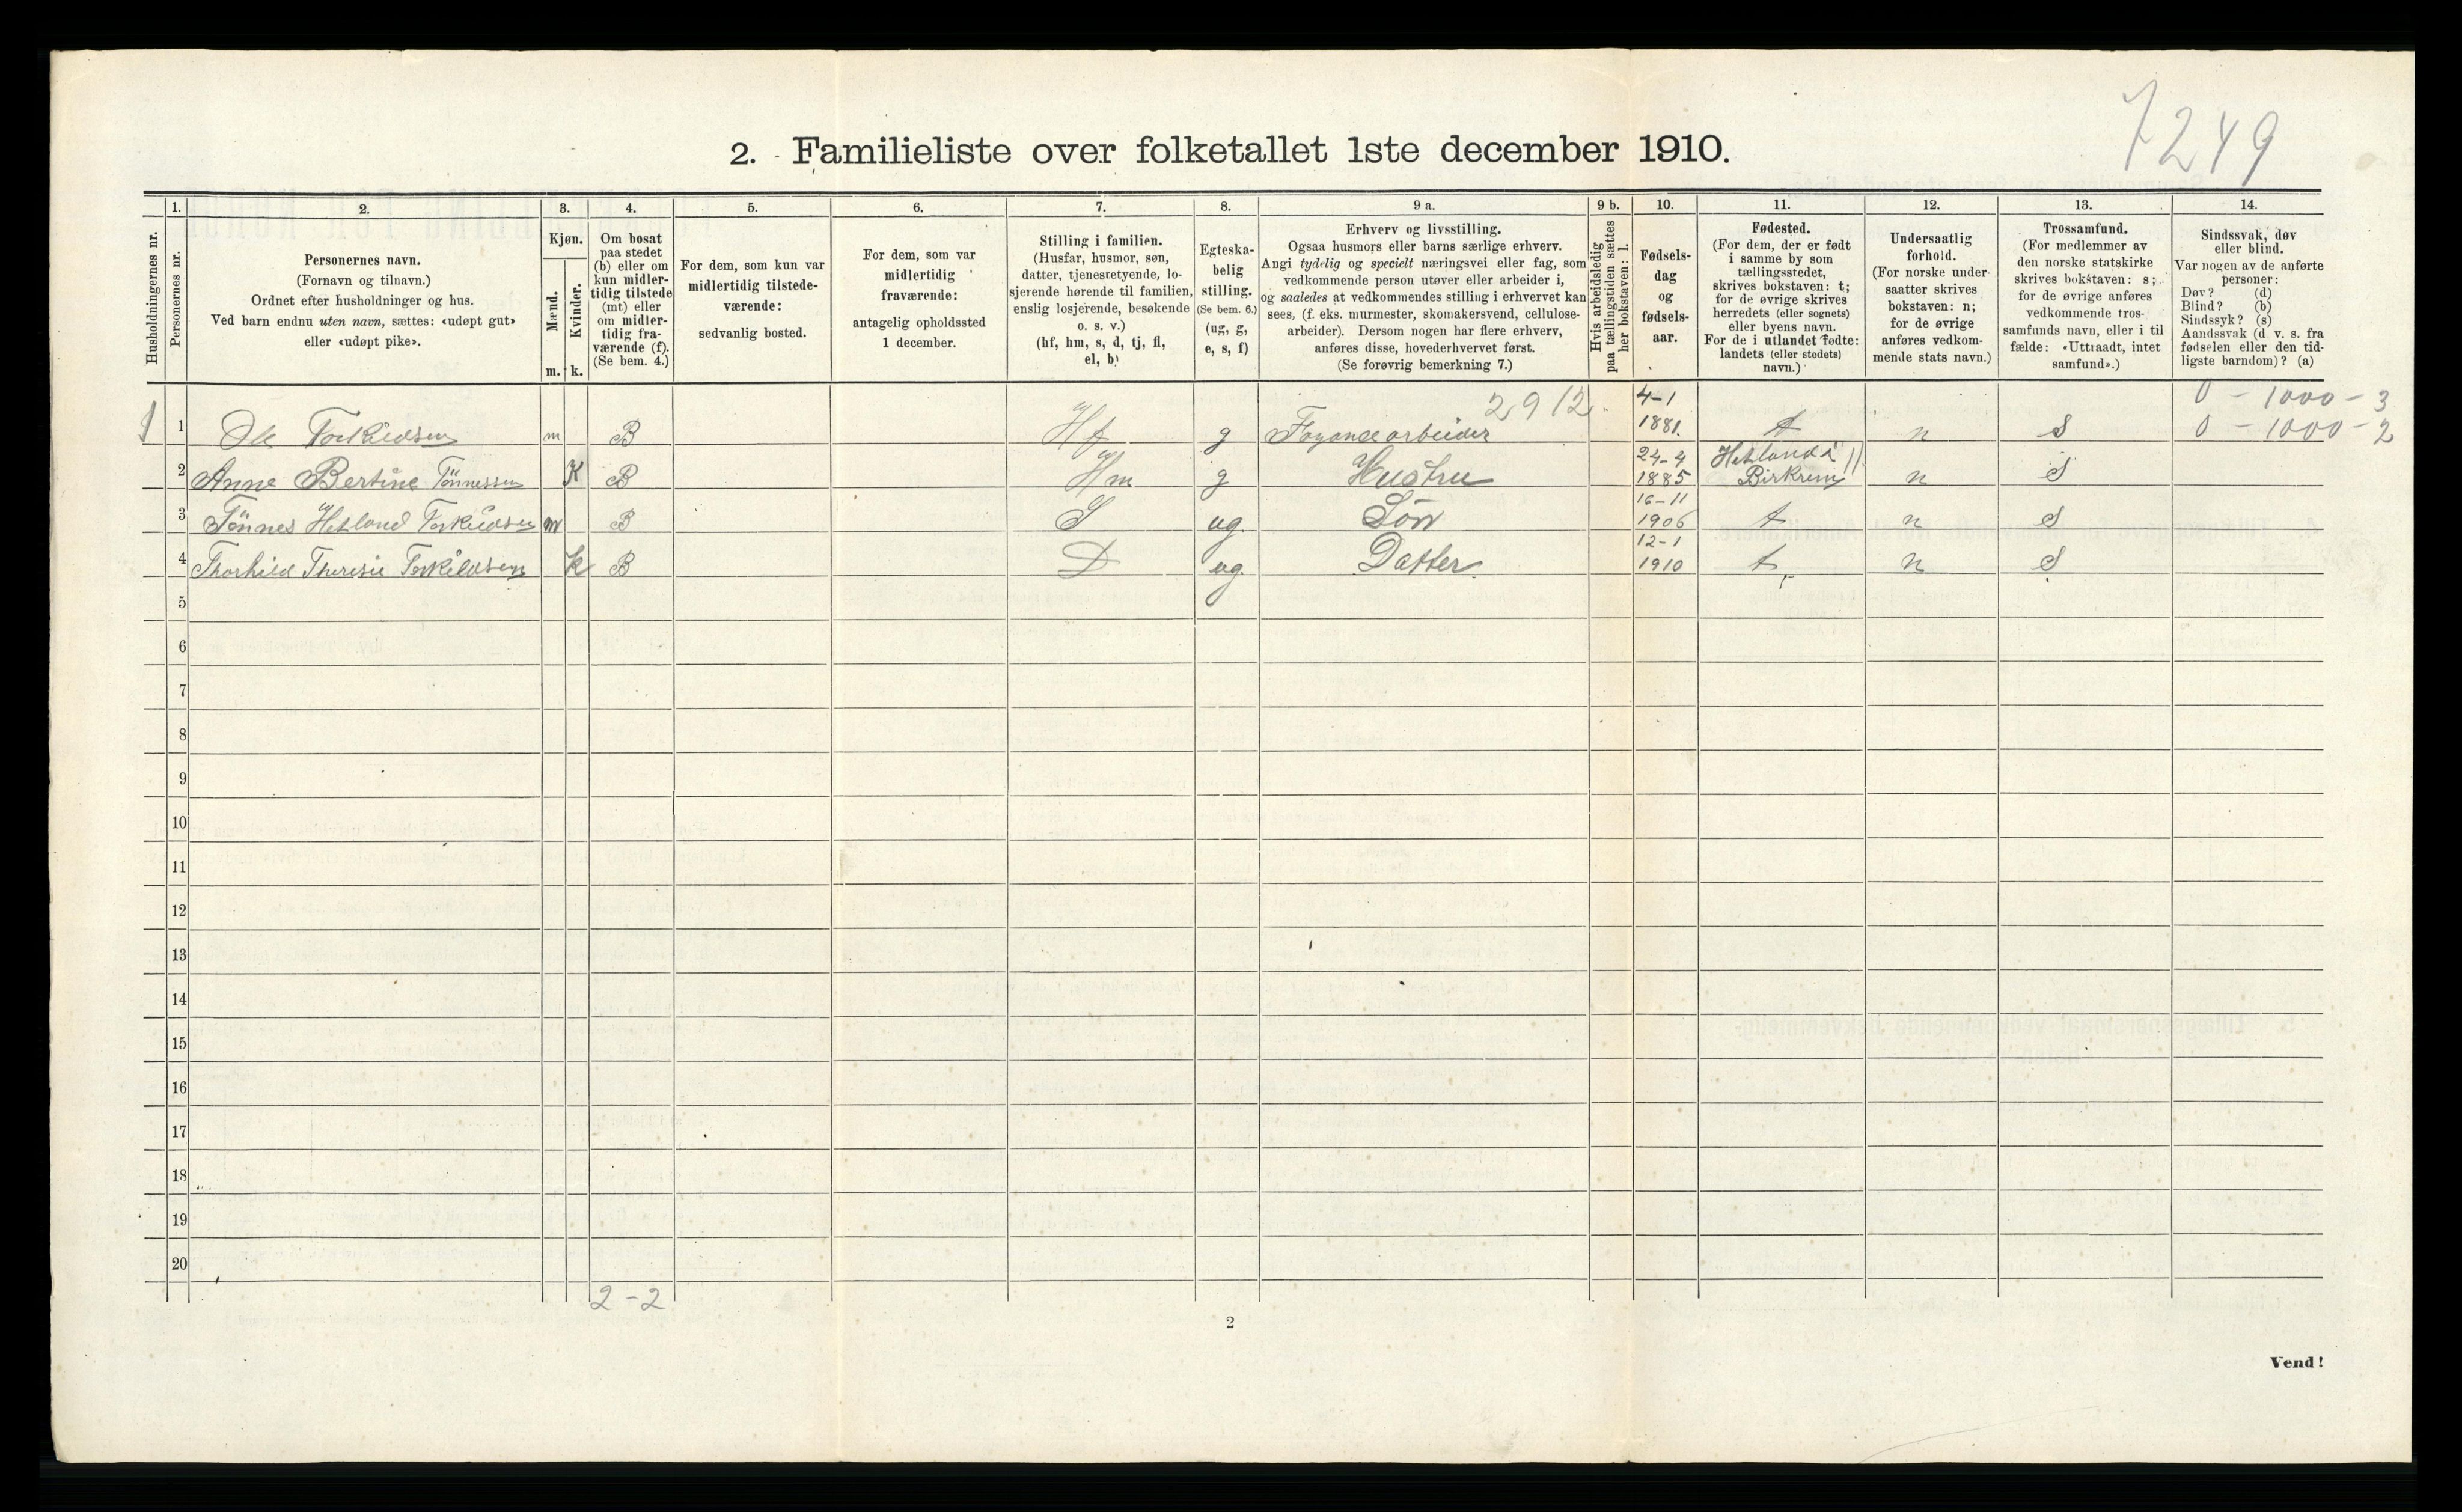 7249
2. Familieliste over folketallet 1ste december 1910.
1. 2. 3. 4. 5. 6. 7. 8. 9 a. 9 b. 10. 11. 12. 13. 14.
Husholdningernes nr.
Personernes nr.
Personernes navn.
(Fornavn og tilnavn.)
Ordnet efter husholdninger og hus.
Ved barn endnu uten navn, sættes: «udøpt gut»
eller «udøpt pike».
Kjøn.
Mænd.
Kvinder.
m. k.
Om bosat
paa stedet
(b) eller om
kun midler-
tidig tilstede
(mt) eller
om midler-
tidig fra-
værende (f).
(Se bem. 4.)
For dem, som kun var
midlertidig tilstede-
værende:
sedvanlig bosted.
For dem, som var
midlertidig
fraværende:
antagelig opholdssted
1 december.
Stilling i familien.
(Husfar, husmor, søn,
datter, tjenestetyende, lo-
sjerende hørende til familien,
enslig losjerende, besøkende
o. s. v.)
(hf, hm, s, d, tj, fl,
el, b)
Egteska-
belig
stilling.
(Se bem. 6.)
(ug, g,
e, s, f)
Erhverv og livsstilling.
Ogsaa husmors eller barns særlige erhverv.
Angi tydelig og specielt næringsvei eller fag, som
vedkommende person utøver eller arbeider i,
og saaledes at vedkommendes stilling i erhvervet kan
sees, (f. eks. murmester, skomakersvend, cellulose-
arbeider). Dersom nogen har flere erhverv,
anføres disse, hovederhvervet først.
(Se forøvrig bemerkning 7.)
Hvis arbeidsledig
paa tællingstiden sættes
her bokstaven: l.
Fødsels-
dag
og
fødsels-
aar.
Fødested.
(For dem, der er født
i samme by som
tællingsstedet,
skrives bokstaven: t;
for de øvrige skrives
herredets (eller sognets)
eller byens navn.
For de i utlandet fødte:
landets (eller stedets)
navn.)
Undersaatlig
forhold.
(For norske under-
saatter skrives
bokstaven: n;
for de øvrige
anføres vedkom-
mende stats navn.)
Trossamfund.
(For medlemmer av
den norske statskirke
skrives bokstaven: s;
for de øvrige anføres
vedkommende tros-
samfunds navn, eller i til
fælde: «Uttraadt, intet
samfund».)
Sindssvak, døv
eller blind.
Var nogen av de anførte
personer:
Døv? (d)
Blind? (b)
Sindssyk? (s)
Aandssvak (d. v. s. fra
fødselen eller den tid-
ligste barndom)? (a)
2912. 4-1 0 - 1000 - 3
1 1 Ole Torkildsen m B Hf g Fayancearbeider 1881. t n S 0 - 1000 - 2
24-4 Hetland i
2 Anne Bertine Tönnessen K B Hm g Hustru 1885 Birkrem 11 n S
16-11
3 Tönnes Hetland Torkildsen m B S ug. Sön 1906 t n S
12-1
4 Thorhild Theresie Torkildsen k B D ug Datter 1910 t n S
5
6
7
8
9
10
11
12
13
14
15
16
17
18
19
20
2-2
2
Vend!